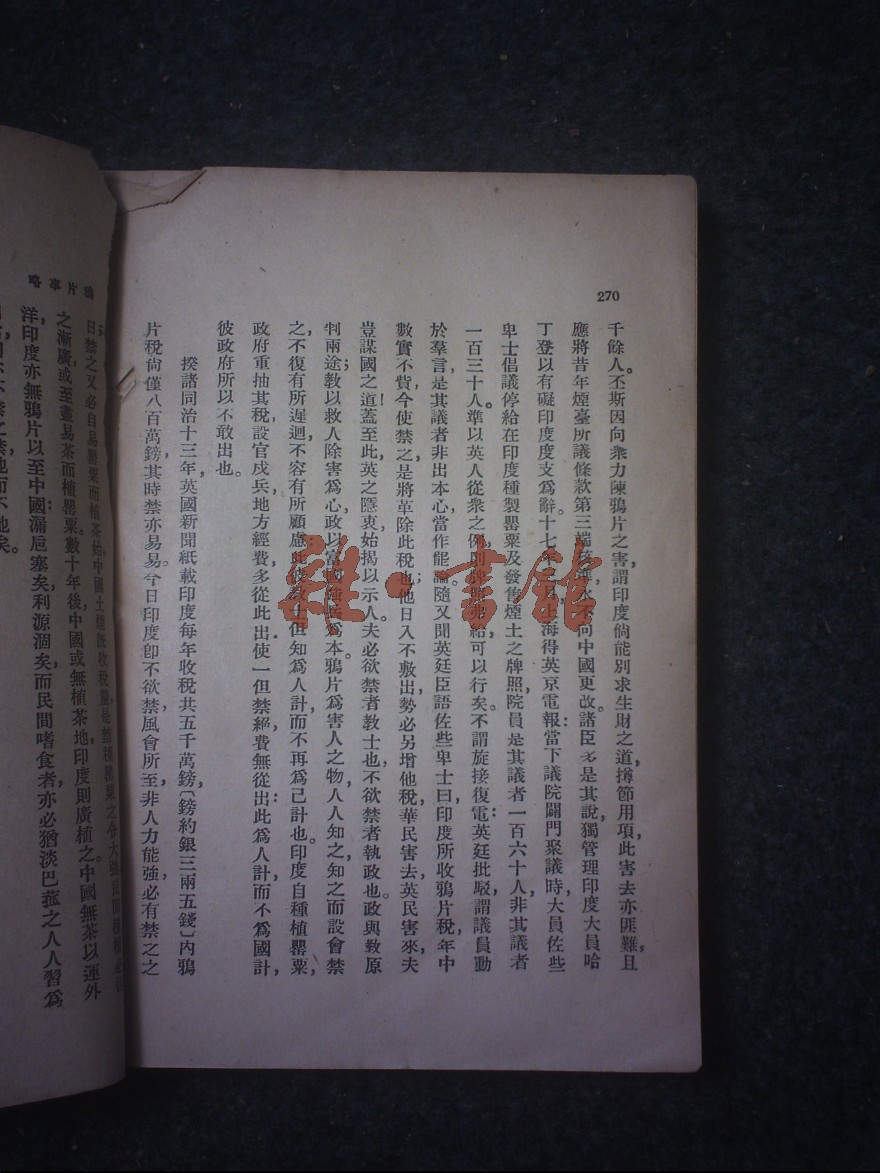 270
千餘人。丕斯因向衆力陳鴉片之害，謂印度倘能別求生財之道，撙節用項，此害去亦匪難，且
應將昔年煙臺所議條款第三端，不向中國更改。諸臣多是其說，獨管理印度大員哈
丁登以有礙印度度支爲辭。十七年，上海得英京電報：當下議院闢門聚議時，大員佐些
卑士倡議停給在印度種製罌粟及發售煙土之牌照，院員是其議者一百六十人，非其議者
一百三十人。準以英人從衆之例，則牌照弗給可以行矣。不謂旋接復電：英廷批駁，謂議員動
於羣言，是其議者非出本心，當作罷論。隨又聞英廷臣語佐些卑士曰：印度所收鴉片稅，年中
數實不貲，今使禁之，是將革除此稅也；他日入不敷出，勢必另增他稅，華民害去，英民害來，夫
豈謀國之道！蓋至此，英之隱衷始揭以示人。夫必欲禁者教士也，不欲禁者執政也。政與教原
判兩途；教以救人除害爲心，政以富國強兵爲本。鴉片爲害人之物，人人知之，知之而設會禁
之，不復有所遲迴，不容有所顧慮，此後教士但知爲人計，而不再爲己計也。印度自種植罌粟，
政府重抽其稅，設官戍兵，地方經費，多從此出；使一但禁絕，費無從出；此爲人計而不爲國計，
彼政府所以不敢出也。
揆諸同治十三年，英國新聞紙載印度每年收稅共五千萬鎊，〔鎊約銀三兩五錢〕內鴉
片稅尙僅八百萬鎊，其時禁亦易易。今日印度卽不欲禁，風會所至，非人力能強，必有禁之之
鴉片事略
日。禁之又必自易罌粟而植茶始。中國土煙旣收稅釐，是禁種罌粟之令大弛，民間種植
之漸廣，或至盡易茶而植罌粟。數十年後，中國或無植茶地，印度則廣植之，中國無茶以運外
洋，印度亦無鴉片以至中國；漏卮塞矣，利源涸矣，而民間嗜食者，亦必猶淡巴菰之人人習爲
雜·書館